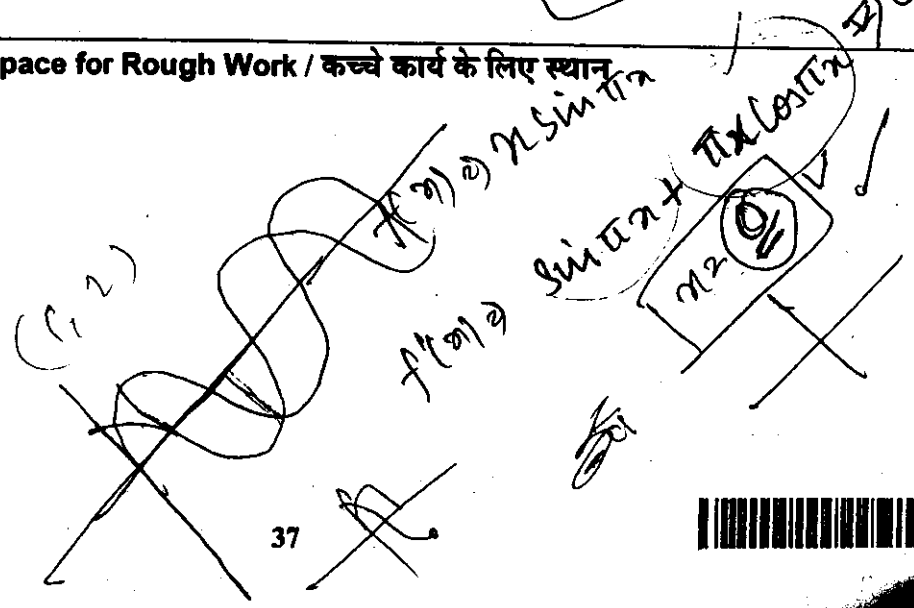 pace for Rough Work / कच्चे कार्य के लिए स्थान
f(x) = x sin πx
f'(x) = sin πx + πx cos πx
x = 0
(1, 2)
37